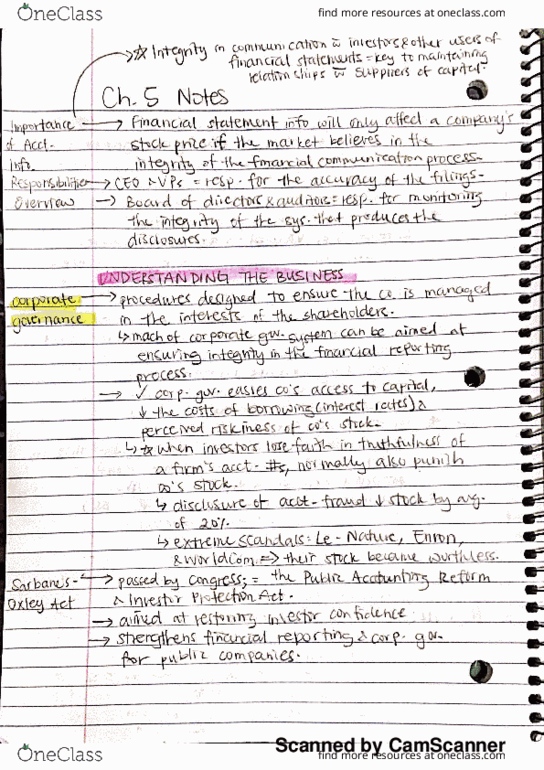 OneClass
find more resources at oneclass.com
☆ Integrity in communication w̄ investors & other users of
financial statements = key to maintaining
relationships w̄ suppliers of capital.
Ch. 5 Notes
Importance → Financial statement info will only affect a company's
of Acct. stock price if the market believes in the
Info. integrity of the financial communication process.
Responsibilities → CEO & VPs = resp. for the accuracy of the filings.
Overview → Board of directors & auditors = resp. for monitoring
the integrity of the sys. that produces the
disclosures.
UNDERSTANDING THE BUSINESS
corporate → procedures designed to ensure the co. is managed
governance in the interests of the shareholders.
↳ much of corporate gov. system can be aimed at
ensuring integrity in the financial reporting
process.
→ ✓ corp. gov. easies co's access to capital,
↓ the costs of borrowing (interest rates) &
perceived riskiness of co's stock.
↳ ☆ when investors lose faith in truthfulness of
a firm's acct. #s, normally also punish
co's stock.
↳ disclosure of acct. fraud ↓ stock by avg.
of 20%.
↳ extreme scandals: Le-Nature, Enron,
& WorldCom. => their stock became worthless.
Sarbanes- → passed by Congress; = the Public Accounting Reform
Oxley Act & Investor Protection Act.
→ aimed at restoring investor confidence
→ strengthens financial reporting & corp. gov.
for public companies.
Scanned by CamScanner
OneClass
find more resources at oneclass.com